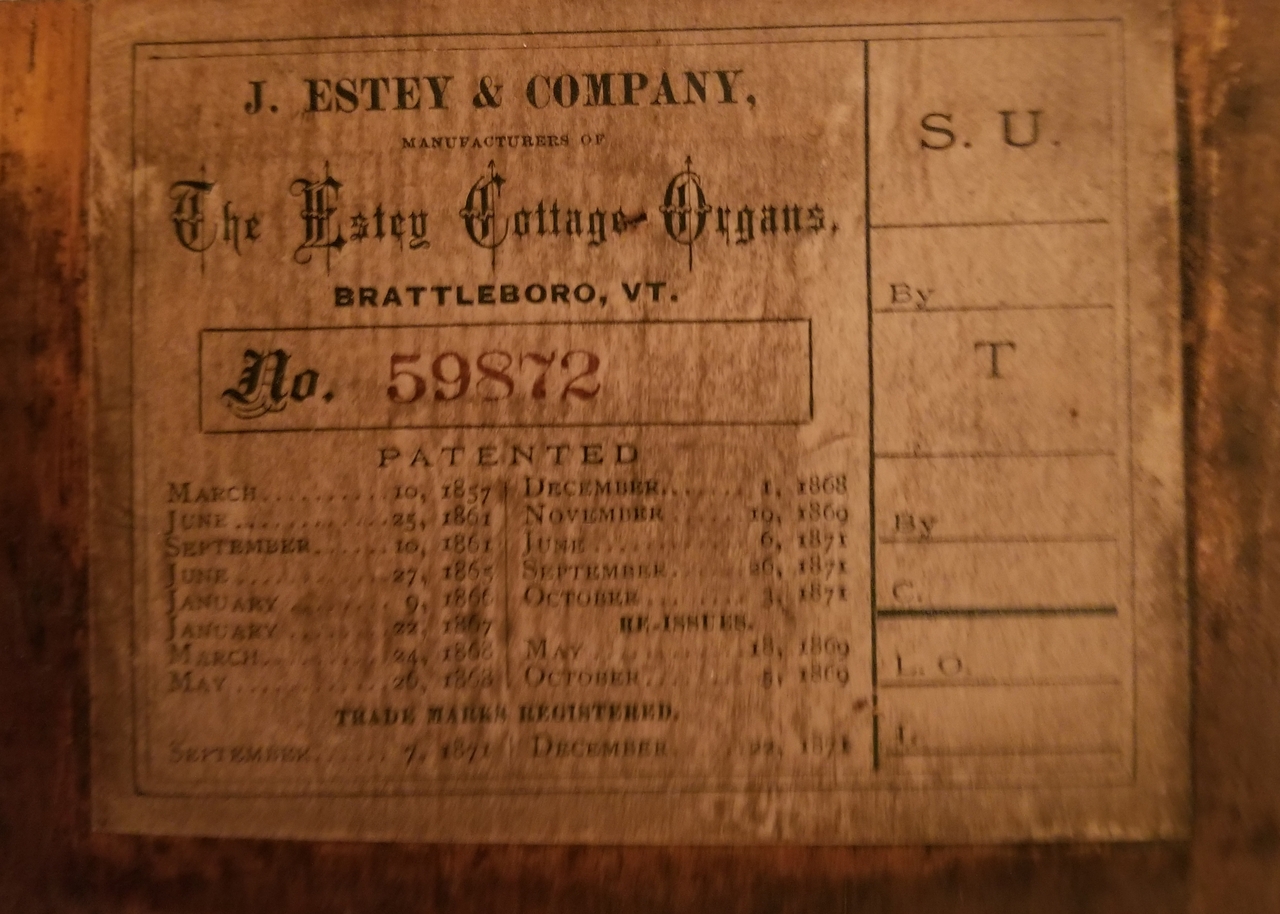 J. ESTEY & COMPANY,
MANUFACTURERS OF
The Estey Cottage Organs,
BRATTLEBORO, VT.
No. 59872
PATENTED
MARCH.......... 10, 1857
JUNE............ 25, 1861
SEPTEMBER...... 10, 1861
JUNE............ 27, 1865
JANUARY........ 9, 1866
JANUARY........ 22, 1867
MARCH.......... 24, 1868
MAY............ 26, 1868
DECEMBER....... 1, 1868
NOVEMBER...... 19, 1869
JUNE............ 6, 1871
SEPTEMBER..... 26, 1871
OCTOBER........ 3, 1871
RE-ISSUES.
MAY............ 18, 1869
OCTOBER........ 5, 1869
TRADE MARKS REGISTERED.
SEPTEMBER...... 7, 1871
DECEMBER 1871
S. U.
By
T
By
C.
L. O.